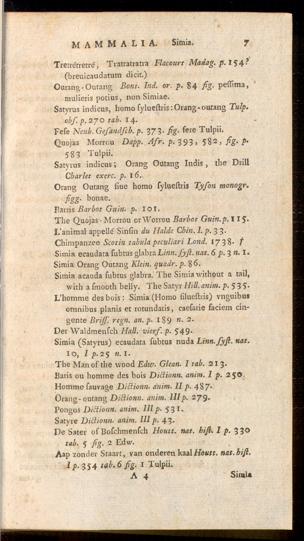 MAMMALIA. Simia. 7
Tretrétretré, Tratratratra Flacourt Madag. p. 154?
(breuicaudatum dicit.)
Ourang-Outang Bont. Ind. or. p. 84 fig. pessima,
mulieris potius, non Simiae.
Satyrus indicus, homo syluestris: Orang-outang Tulp.
obs. p. 270 tab. 14.
Fese Neuh. Gesandsch. p. 373. fig. fere Tulpii.
Quojas Morrou Dapp. Afr. p. 393, 582, fig. p.
583 Tulpii.
Satyrus indicus; Orang Outang Indis, the Drill
Charlet exerc. p. 16.
Orang Outang siue homo syluestris Tyson monogr.
figg. bonae.
Barris Barbot Guin. p. 101.
The Quojas-Morrou or Worrou Barbot Guin. p. 115.
L'animal appellé Sinsin du Halde Chin. I. p. 33.
Chimpanzee Scotin tabula peculiari Lond. 1738. †
Simia ecaudata subtus glabra Linn. syst. nat. 6 p. 3 n. 1.
Simia Orang Outang Klein. quadr. p. 86.
Simia acauda subtus glabra. The Simia without a tail,
with a smooth belly. The Satyr Hill. anim. p. 535.
L'homme des bois: Simia (Homo siluestris) vnguibus
omnibus planis et rotundatis, caesarie faciem cin-
gente Briss. regn. an. p. 189 n. 2.
Der Waldmensch Hall. vierf. p. 549.
Simia (Satyrus) ecaudata subtus nuda Linn. syst. nat.
10, I p. 25 n. 1.
The Man of the wood Edw. Glean. I tab. 213.
Baris ou homme des bois Dictionn. anim. I p. 250.
Homme sauvage Dictionn. anim. II p. 487.
Orang-outang Dictionn. anim. III p. 279.
Pongos Dictionn. anim. III p. 531.
Satyre Dictionn. anim. III p. 43.
De Sater of Boschmensch Houtt. nat. hist. I p. 330
tab. 5 fig. 2 Edw.
Aap zonder Staart, van onderen kaal Houtt. nat. hist.
I p. 354 tab. 6 fig. 1 Tulpii.
A 4 Simia